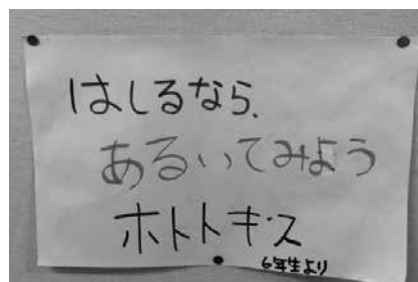 はしるなら、
あるいてみよう
ホトトギス
6年生より